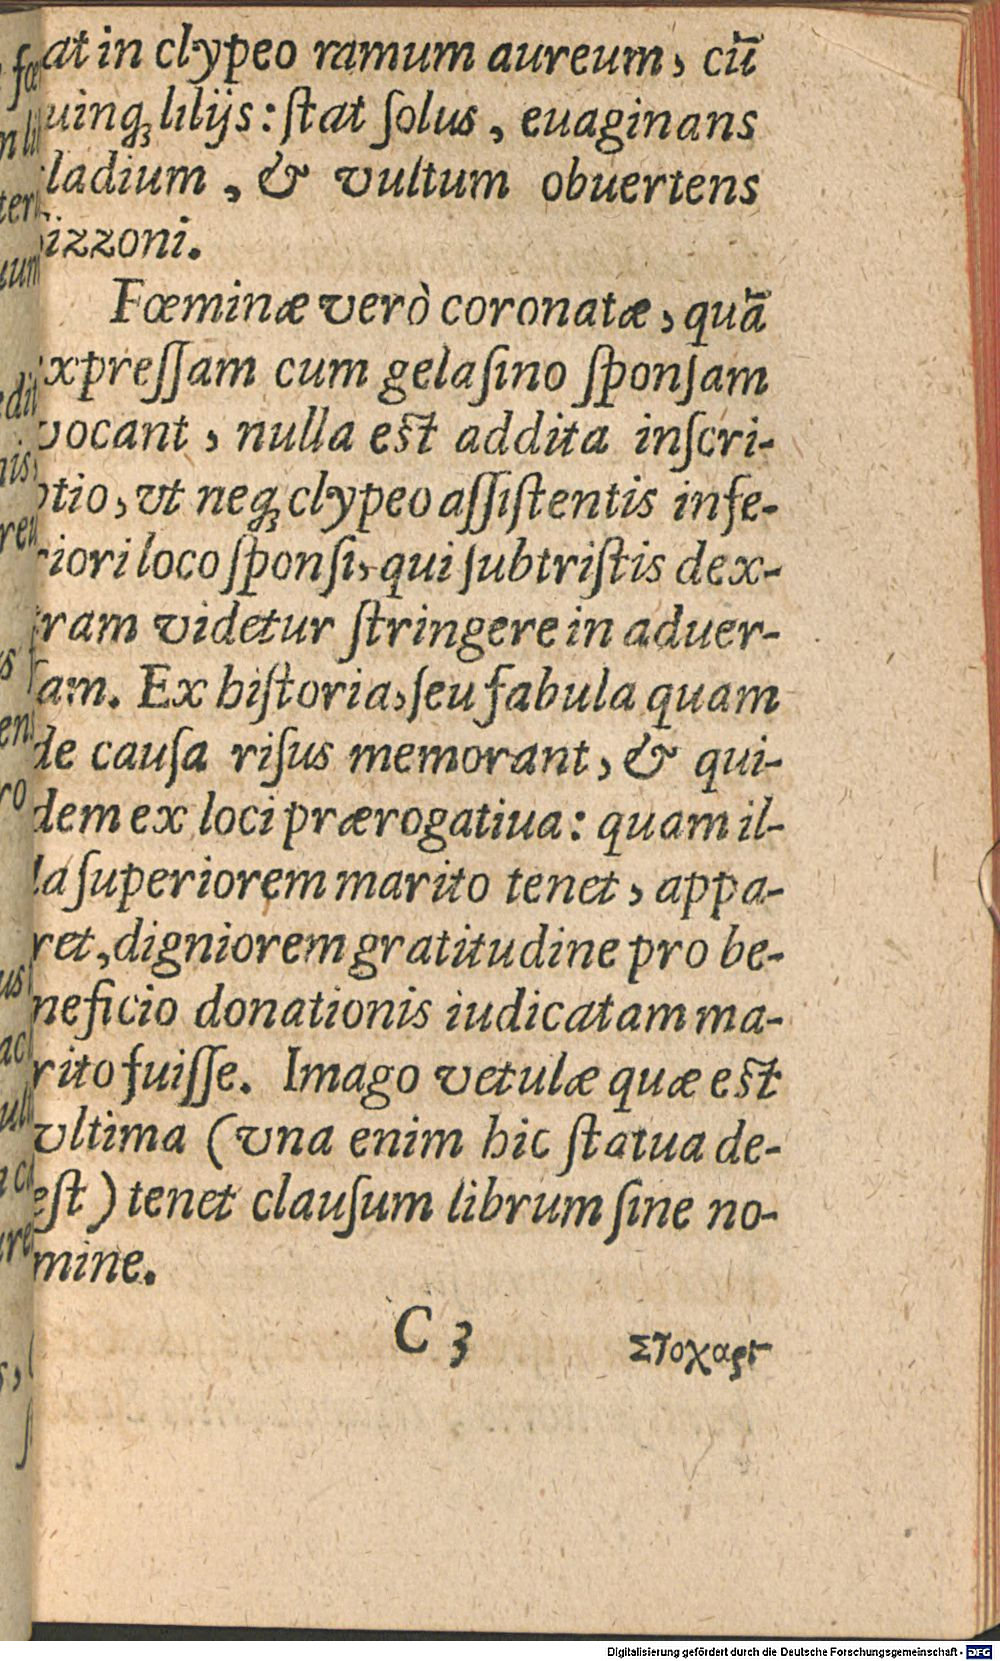 at in clypeo ramum aureum, cū
uinq; lilijs: ſtat ſolus, euaginans
ladium, & vultum obuertens
izzoni.
Fœminæ verò coronatæ, quā
xpreſſam cum gelaſino ſponſam
vocant, nulla eſt addita inſcri-
ptio, vt neq; clypeo aſſiſtentis infe-
riori loco ſponſi, qui ſubtriſtis dex-
tram videtur ſtringere in aduer-
ſam. Ex hiſtoria, ſeu fabula quam
de cauſa riſus memorant, & qui-
dem ex loci prærogatiua: quam il-
la ſuperiorem marito tenet, appa-
ret, digniorem gratitudine pro be-
neficio donationis iudicatam ma-
rito fuiſſe. Imago vetulæ quæ eſt
vltima (vna enim hic ſtatua de-
eſt) tenet clauſum librum ſine no-
mine.
C 3
Digitalisierung gefördert durch die Deutsche Forschungsgemeinschaft - DFG